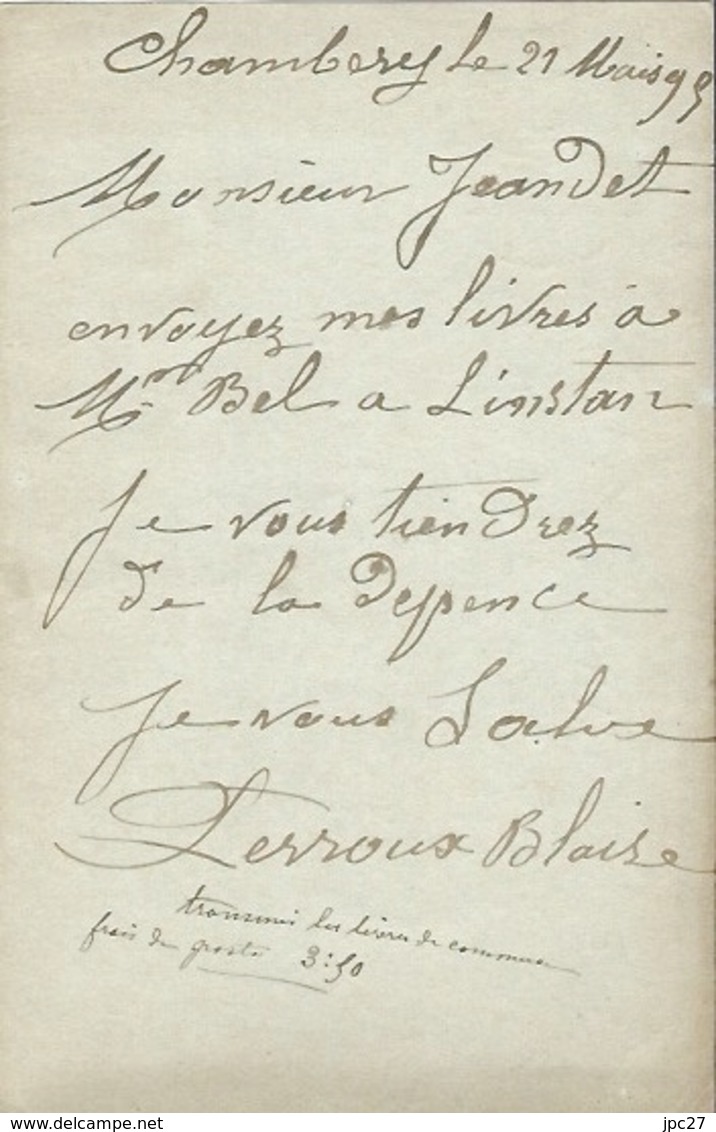 Chambery le 21 Mais 95
Monsieur Jeandet
envoyez mes livres à
Mr Bel a Linstan
Je vous tiendrez
de la depence
Je vous Salue
Perroux Blaise
transmis les livres de commerce
frais de 3:50
www.delcampe.net jpc27